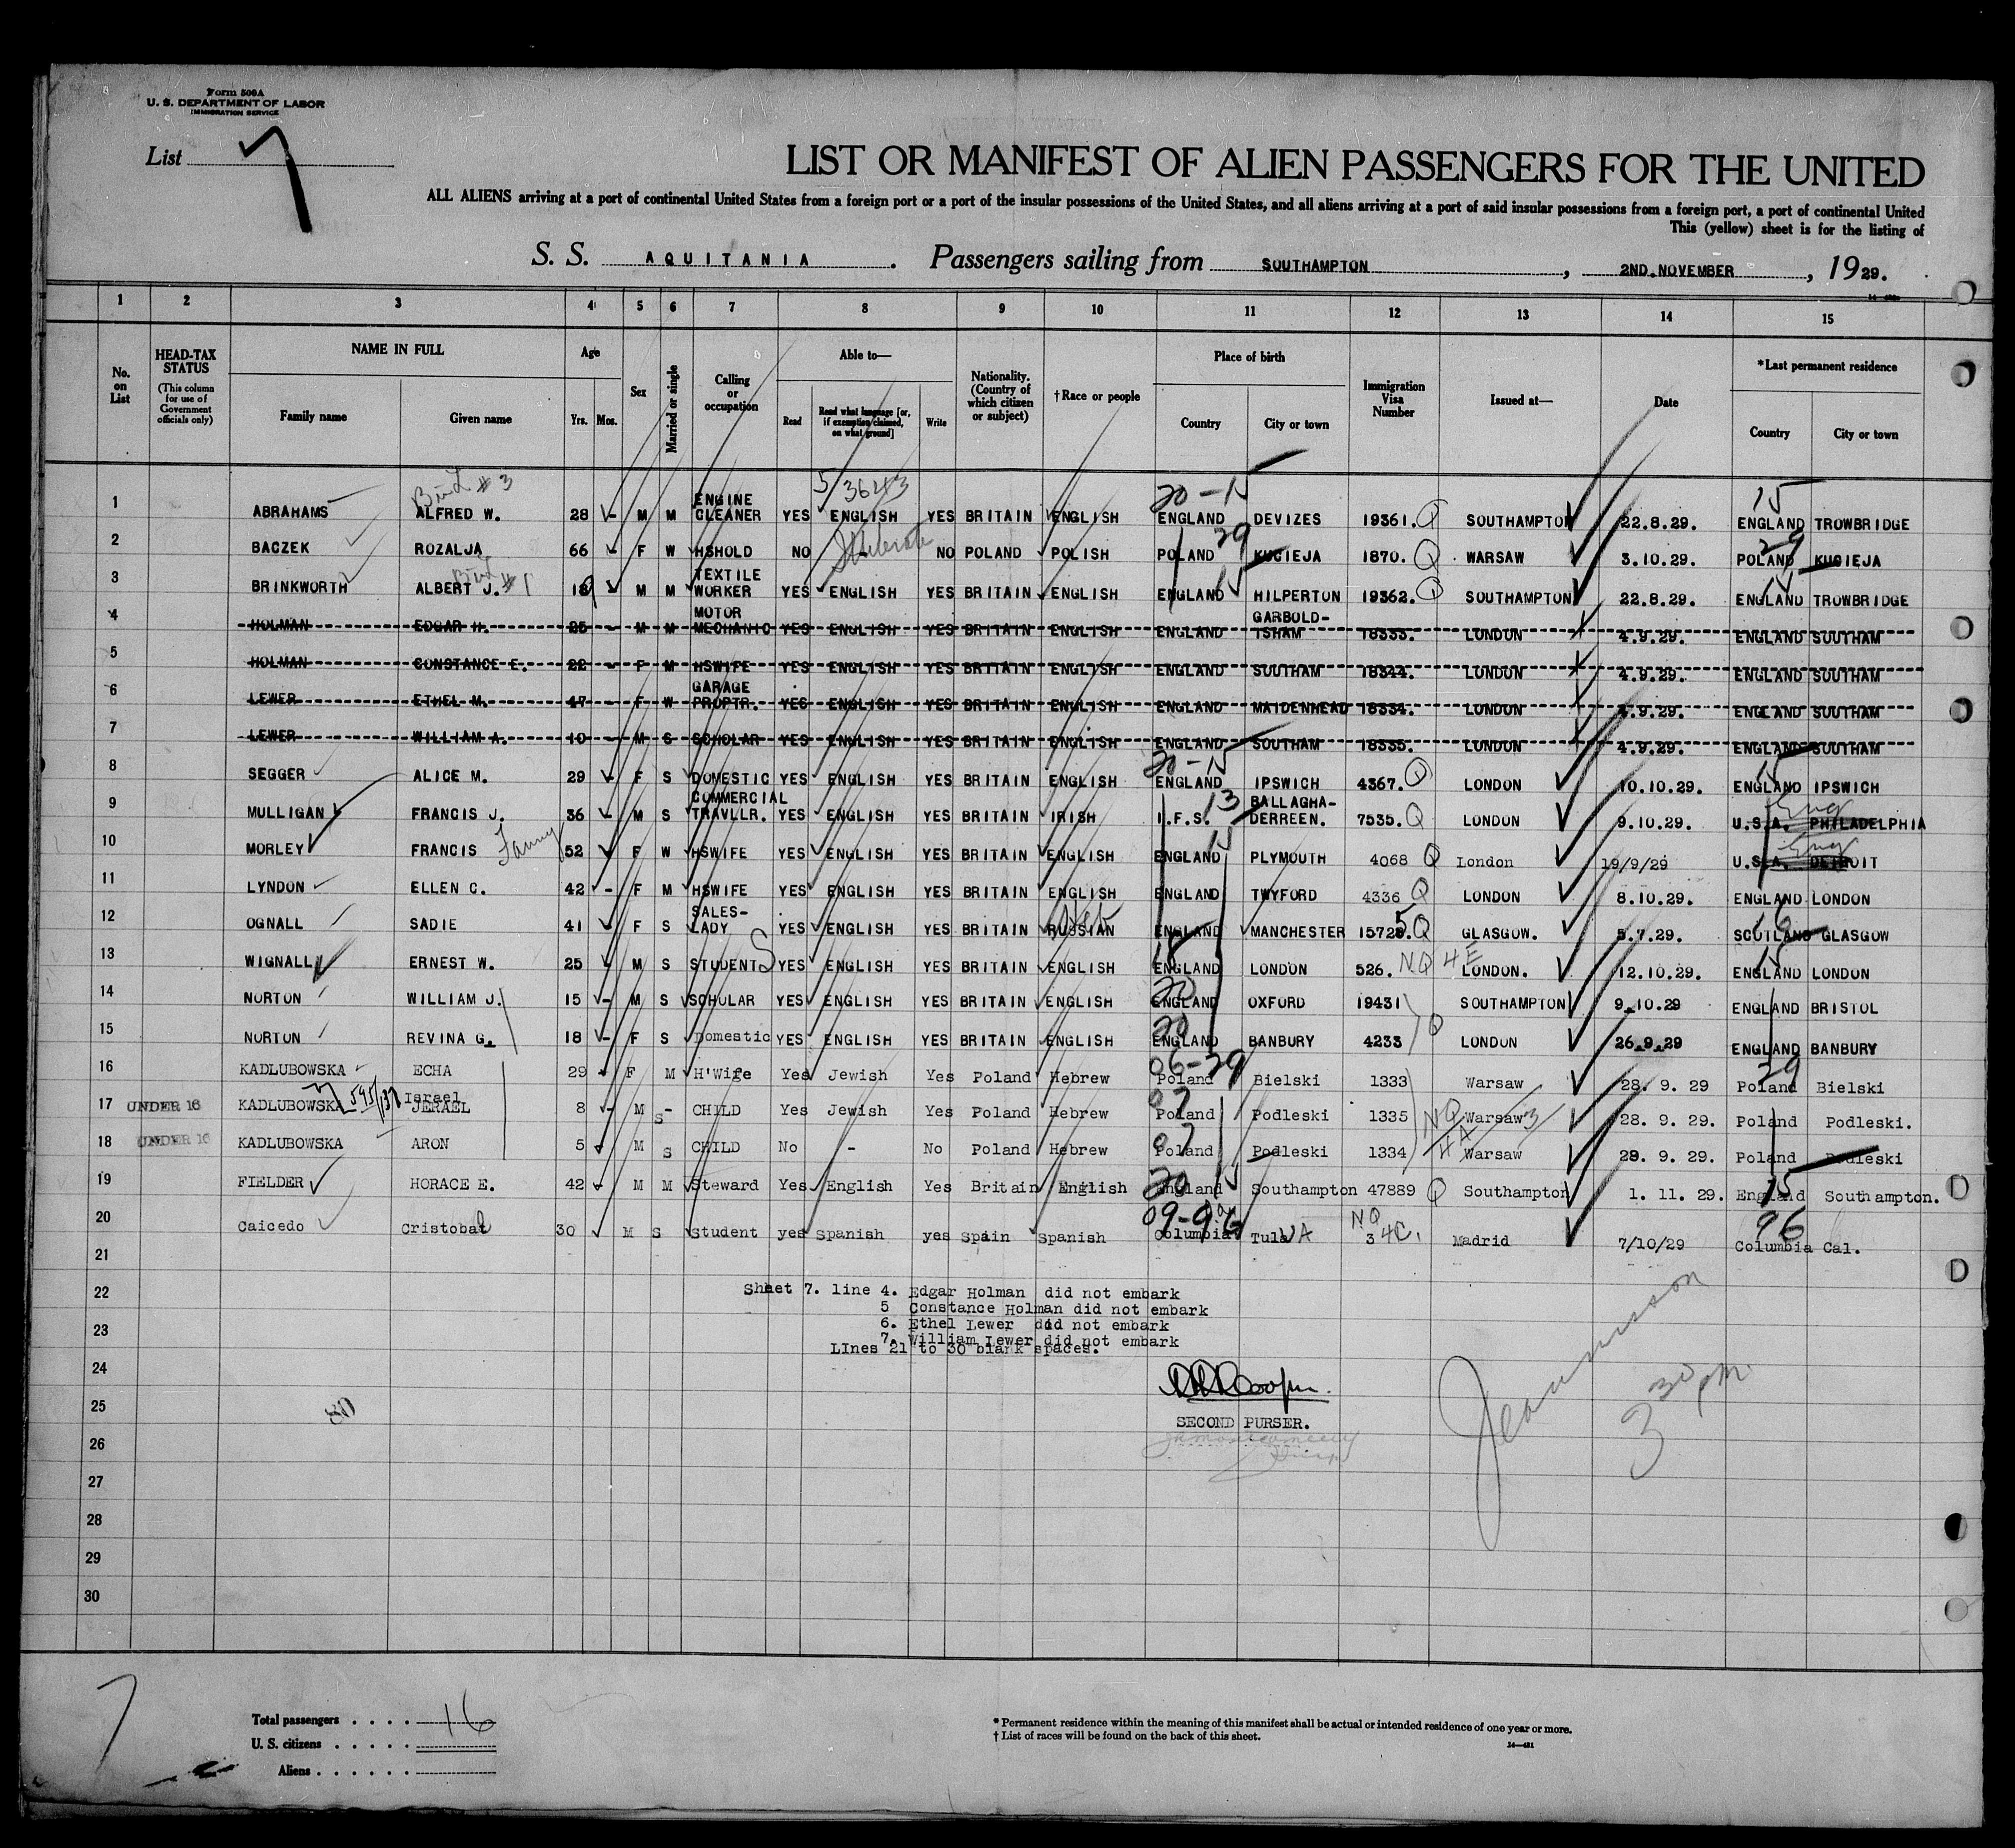 Form 500A
U. S. DEPARTMENT OF LABOR
IMMIGRATION SERVICE
List 7
LIST OR MANIFEST OF ALIEN PASSENGERS FOR THE UNITED
ALL ALIENS arriving at a port of continental United States from a foreign port or a port of the insular possessions of the United States, and all aliens arriving at a port of said insular possessions from a foreign port, a port of continental United
This (yellow) sheet is for the listing of
S. S. AQUITANIA. Passengers sailing from SOUTHAMPTON, 2ND.NOVEMBER, 1929.
1 2 3 4 5 6 7 8 9 10 11 12 13 14 15
No. on List
HEAD-TAX STATUS (This column for use of Government officials only)
NAME IN FULL Family name Given name
Age Yrs. Mos.
Sex
Married or single
Calling or occupation
Able to— Read Read what language [or, if exemption claimed, on what ground] Write
Nationality. (Country of which citizen or subject)
†Race or people
Place of birth Country City or town
Immigration Visa Number
Issued at—
Date
*Last permanent residence Country City or town
1 ABRAHAMS ALFRED W. 28 - M M ENGINE CLEANER YES ENGLISH YES BRITAIN ENGLISH ENGLAND DEVIZES 19361. Q SOUTHAMPTON 22.8.29. ENGLAND TROWBRIDGE
2 BACZEK ROZALJA 66 - F W HSHOLD NO - NO POLAND POLISH POLAND KUCIEJA 1870. Q WARSAW 3.10.29. POLAND KUCIEJA
3 BRINKWORTH ALBERT J. #1 18 M M TEXTILE WORKER YES ENGLISH YES BRITAIN ENGLISH ENGLAND HILPERTON 19362. Q SOUTHAMPTON 22.8.29. ENGLAND TROWBRIDGE
4 HOLMAN EDGAR H. 25 - M M MOTOR MECHANIC YES ENGLISH YES BRITAIN ENGLISH ENGLAND GARBOLD-ISHAM 18333. LONDON 4.9.29. ENGLAND SOUTHAM
5 HOLMAN CONSTANCE E. 22 - F M HSWIFE YES ENGLISH YES BRITAIN ENGLISH ENGLAND SOUTHAM 18344. LONDON 4.9.29. ENGLAND SOUTHAM
6 LEWER ETHEL M. 47 - F W GARAGE PROPTR. YES ENGLISH YES BRITAIN ENGLISH ENGLAND MAIDENHEAD 18334. LONDON 4.9.29. ENGLAND SOUTHAM
7 LEWER WILLIAM A. 10 - M S SCHOLAR YES ENGLISH YES BRITAIN ENGLISH ENGLAND SOUTHAM 18335. LONDON 4.9.29. ENGLAND SOUTHAM
8 SEGGER ALICE M. 29 - F S DOMESTIC YES ENGLISH YES BRITAIN ENGLISH ENGLAND IPSWICH 4367. Q LONDON 10.10.29. ENGLAND IPSWICH
9 MULLIGAN FRANCIS J. 36 - M S COMMERCIAL TRAVLLR. YES ENGLISH YES BRITAIN IRISH I.F.S. BALLAGHA-DERREEN. 7535. Q LONDON 9.10.29. U.S.A. PHILADELPHIA Eng
10 MORLEY FRANCIS Fanny 52 F W HSWIFE YES ENGLISH YES BRITAIN ENGLISH ENGLAND PLYMOUTH 4068 Q London 19/9/29 U.S.A. DETROIT Eng
11 LYNDON ELLEN C. 42 - F M HSWIFE YES ENGLISH YES BRITAIN ENGLISH ENGLAND TWYFORD 4336 Q LONDON 8.10.29. ENGLAND LONDON
12 OGNALL SADIE 41 F S SALES-LADY YES ENGLISH YES BRITAIN RUSSIAN ENGLAND MANCHESTER 15725. Q GLASGOW. 5.7.29. SCOTLAND GLASGOW
13 WIGNALL ERNEST W. 25 M S STUDENT S YES ENGLISH YES BRITAIN ENGLISH ENGLAND LONDON 526. NQ 4E LONDON. 12.10.29. ENGLAND LONDON
14 NORTON WILLIAM J. 15 - M S SCHOLAR YES ENGLISH YES BRITAIN ENGLISH ENGLAND OXFORD 19431 SOUTHAMPTON 9.10.29 ENGLAND BRISTOL
15 NORTON REVINA G. 18 - F S Domestic YES ENGLISH YES BRITAIN ENGLISH ENGLAND BANBURY 4233 Q LONDON 26.9.29 ENGLAND BANBURY
16 KADLUBOWSKA ECHA 29 F M H'Wife Yes Jewish Yes Poland Hebrew Poland Bielski 1333 Warsaw 28. 9. 29 Poland Bielski
17 UNDER 16 KADLUBOWSKA Israel JERAEL 8 - M S CHILD Yes Jewish Yes Poland Hebrew Poland Podleski 1335 NQ Warsaw 28. 9. 29. Poland Podleski.
18 UNDER 16 KADLUBOWSKA ARON 5 M S CHILD No - No Poland Hebrew Poland Podleski 1334 4A Warsaw 28. 9. 29. Poland Podleski
19 FIELDER HORACE E. 42 M M Steward Yes English Yes Britain English England Southampton 47889 Q Southampton 1. 11. 29. England Southampton.
20 Caicedo Cristobal 30 M S Student yes Spanish yes Spain Spanish Columbia Tulua 3 NQ 4C. Madrid 7/10/29 Columbia Cal.
21
22
23
Sheet 7. line 4. Edgar Holman did not embark
5 Constance Holman did not embark
6. Ethel Lewer did not embark
7. William Lewer did not embark
LInes 21 to 30 blank spaces.
24
25
SECOND PURSER.
3 30 pm
26
27
28
29
30
7
Total passengers . . . . 16
U. S. citizens . . . . .
Aliens . . . . . .
* Permanent residence within the meaning of this manifest shall be actual or intended residence of one year or more.
† List of races will be found on the back of this sheet.
14—481